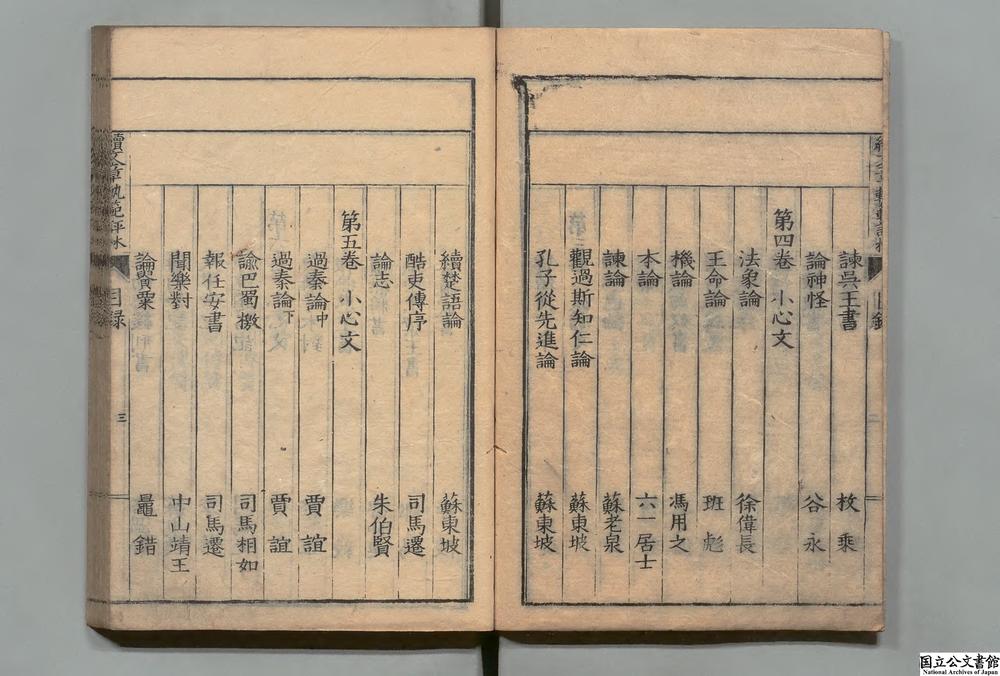 諫吳王書 枚乘
論神怪 谷永
第四卷 小心文
法象論 徐偉長
王命論 班彪
機論 馮用之
本論 六一居士
諫論 蘇老泉
觀過斯知仁論 蘇東坡
孔子從先進論 蘇東坡
續楚語論 蘇東坡
酷吏傳序 司馬遷
論志 朱伯賢
第五卷 小心文
過秦論中 賈誼
過秦論下 賈誼
諭巴蜀檄 司馬相如
報任安書 司馬遷
聞樂對 中山靖王
論貴粟 鼂錯
續文章軌範評林 目録 三
国立公文書館
National Archives of Japan